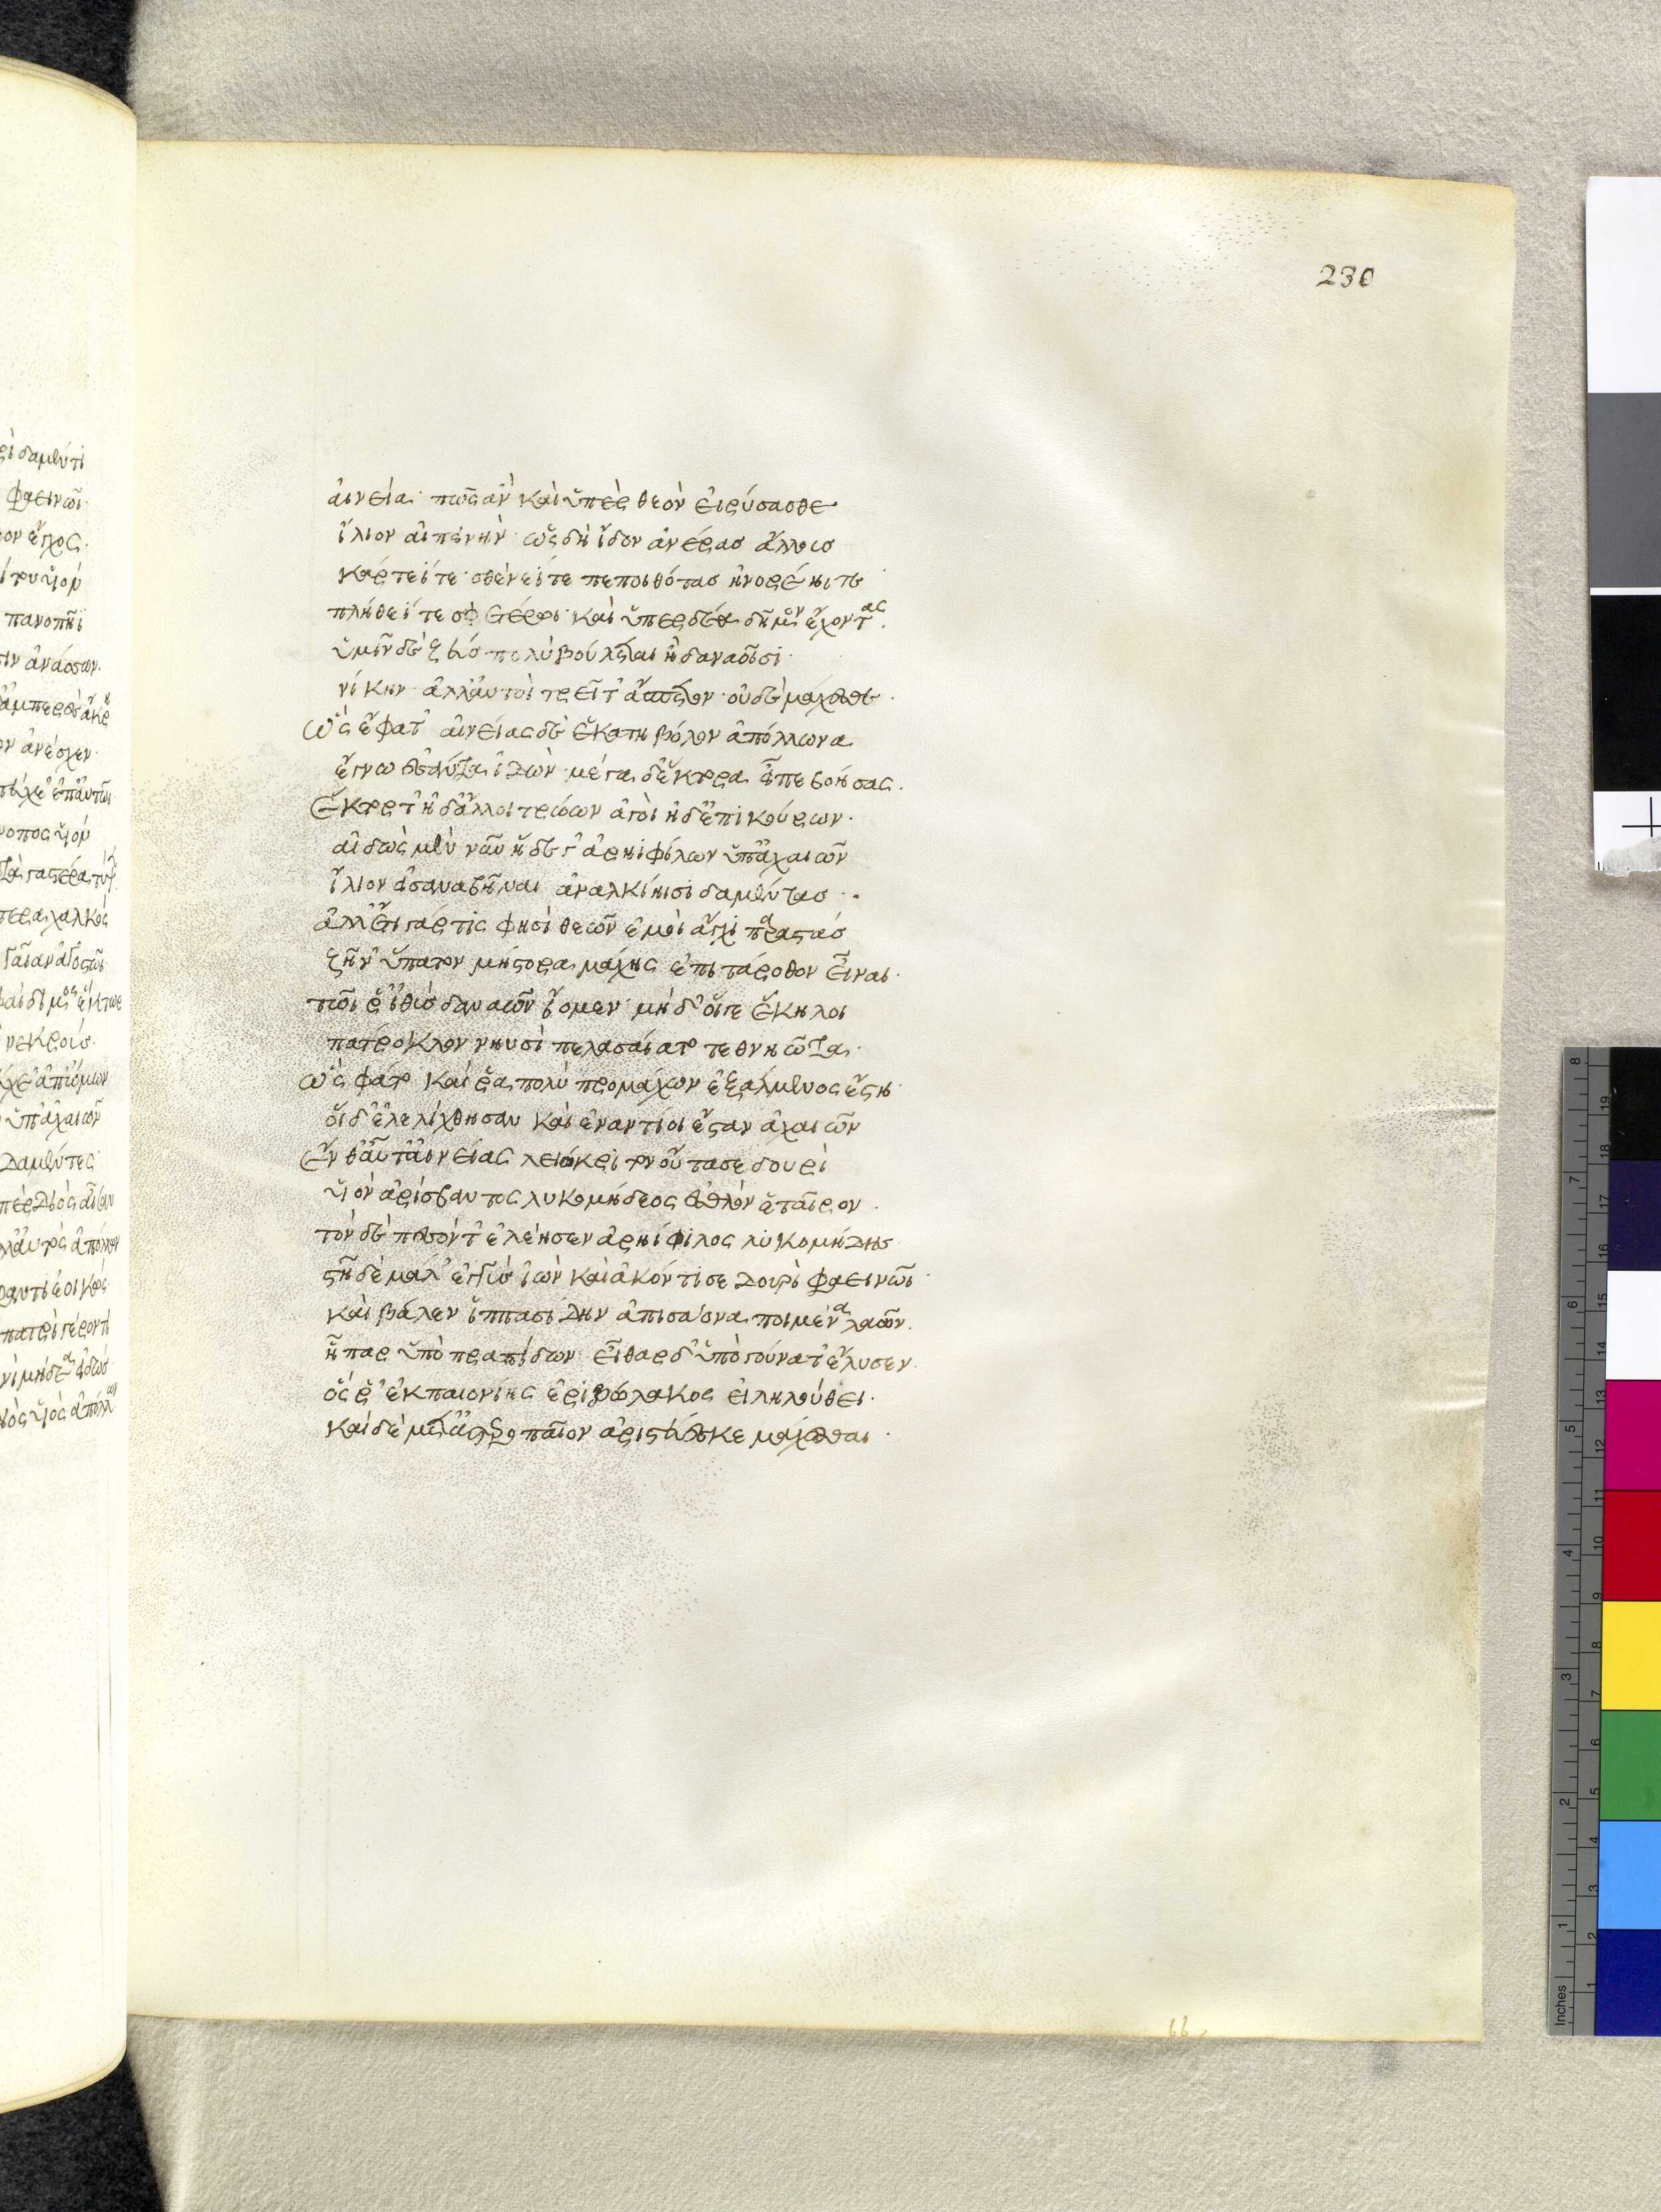 ρὶ δαμέντι
φαεινῶι·
ον ἔγχος·
υἱόν
πανοπῆϊ
ιν ἀνάσσων·
ον ἀνέσχεν·
οπος υἱόν
τερα χαλκὸς
γαῖαν ἀγοστῶι
νεκρούς·
ὑπ ἀχαιῶν
δαμέντες·
πὲρ διὸς αἶσαν
πατρὶ γέροντι
διὸς υἱὸς ἀπόλλων
230
ἀινεία· πῶς ἂν καὶ ὑπὲρ θεὸν ἐιρύσασθε
ἴλιον αἰπεινὴν· ὡς δὴ ἴδον ἀνέρασ ἄλλουσ
κάρτεΐ τε· σθένεΐ τε πεποιθότασ ἠνορέηι τε·
πλήθεΐ τε σφετέρωι· καὶ ὑπερδέα δῆμον ἔχοντας·
ὑμῖν δὲ ζεὺσ πολὺ βούλεται ἢ δαναοῖσι·
νίκην· ἀλλ' ἀυτοὶ τρεῖτ' ἄσπετον· οὐδὲ μάχεσθε·
ὣς ἔφατ' αἰνείας δ' ἑκατηβόλον ἀπόλλωνα
ἔγνω ἐσάντα ἰδὼν· μέγα δ' ἕκτορα εἶπε βοήσας·
ἕκτορ τ' ἠδ' ἄλλοι τρώων ἀγοὶ ἠδ' ἐπικούρων·
αἰδὼς μὲν νῦν ἥδε γ' ἀρηϊφίλων ὑπ' ἀχαιῶν
ἴλιον ἐισαναβῆναι ἀναλκίηισι δαμέντασ·
ἀλλ' ἔτι γάρ τίς φησὶ θεῶν ἐμοὶ ἄγχι παραστάσ
ζῆν' ὕπατον μήστορα μάχης ἐπιτάροθον εἶναι·
τῶι ῥ' ἰθὺσ δαναῶν ἴομεν· μὴδ' οἵγε ἕκηλοι
πάτροκλον νηυσὶ πελασαίατο τεθνηῶτα·
ὣς φάτο καί ῥα πολὺ προμάχων ἐξάλμενος ἔστη·
οἱ δ' ἐλελίχθησαν καὶ ἐναντίοι ἔσταν ἀχαιῶν
ἔνθ' αὖτ' αἰνείας λειόκριτον οὔτασε δουρὶ
υἱὸν ἀρίσβαντος λυκομήδεος ἐσθλὸν ἑταῖρον·
τὸν δὲ πεσόντ' ἐλέησεν ἀρηΐφιλος λυκομήδησ
στῆ δὲ μάλ' ἐγγὺσ ἰὼν καὶ ἀκόντισε δουρὶ φαεινῶι·
καὶ βάλεν ἱππασίδην ἀπισάονα ποιμένα λαῶν·
ἧπαρ ὑπὸ πραπίδων· εἶθαρ δ' ὑπὸ γούνατ' ἔλυσεν·
ὅς ῥ' ἐκ παιονίης ἐριβώλακος εἰληλούθει·
καὶ δὲ μετ' ἀστεροπαῖον ἀριστεύεσκε μάχεσθαι·